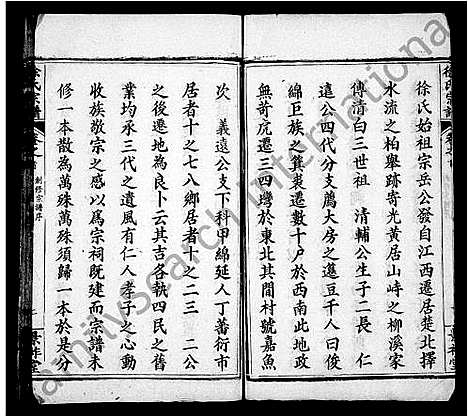 徐氏始祖宗岳公發自江西遷居楚北擇
水流之柏舉跡寄光黃居山峙之柳溪家
傳清白三世祖 清輔公生子二長 仁
遠公四代分支薦大房之 豆千人曰俊
綿巨族之 裘遷數十戶於西南此地政
無苛虎遷三四 於東北其間村號嘉魚
次 義遠公支下科甲綿延人丁蕃衍市
居者十之七八鄉居者十之二三 二公
之後遷地為良卜云其吉各執四民之舊
業均承三代之遺風有仁人孝子之心動
收族敬宗之感以為宗祠既建而宗譜未
修一本散為萬殊萬殊須歸一本於是分
徐氏宗譜
卷之首
創修宗譜序
familysearch international